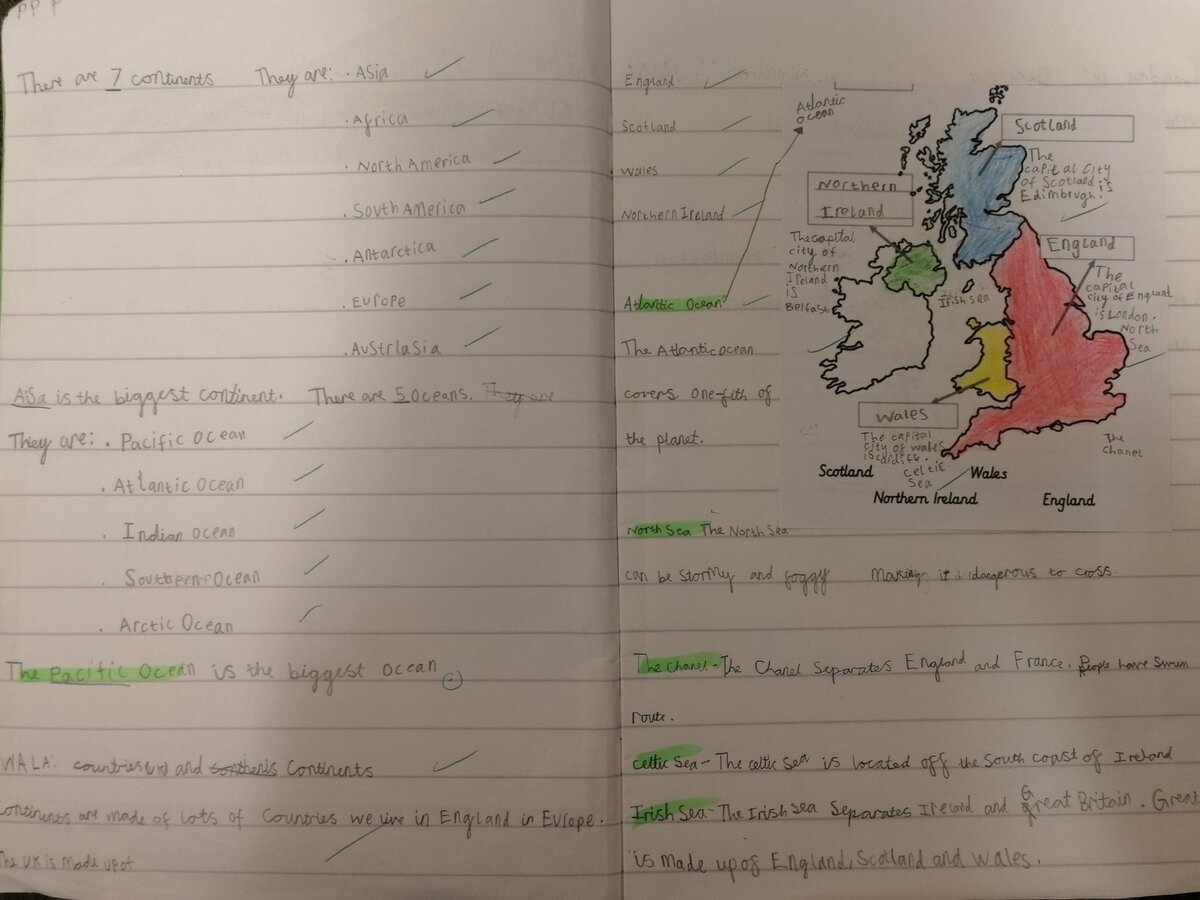 There are 7 continents They are: . Asia
. Africa
. North America
. South America
. Antarctica
. Europe
. Austrlasia
Aisa is the biggest continent. There are 5 oceans. They are
They are: . Pacific Ocean
. Atlantic Ocean
. Indian Ocean
. Southern Ocean
. Arctic Ocean
The Pacific Ocean is the biggest ocean
WALA: countries (UK) and Continents
continents are made of lots of Countries we live in England in Europe.
The UK is made up of
England
Scotland
Wales
Northern Ireland
Atlantic Ocean
The Atlantic ocean
covers one-fith of
the planet.
North Sea The North Sea
can be stormy and foggy making it dangerous to cross.
The Chanel - The Chanel Separates England and France. People have Swum
route.
Celtic Sea - The celtic sea is located off the South coast of Ireland
Irish Sea - The Irish sea Separates Ireland and Great Britain. Great
is made up of England, Scotland and Wales.
Atlantic
Ocean
Scotland
The
capital City
of Scotland is
Edimbrugh.
Northern
Ireland
The capital
city of
Northern
Ireland
is
Belfast
Irish sea
England
The
capital
city of England
is London.
North
Sea
Wales
The capital
city of wales
is cardiff.
Celtic
Sea
The
Chanel
Scotland Wales
Northern Ireland England